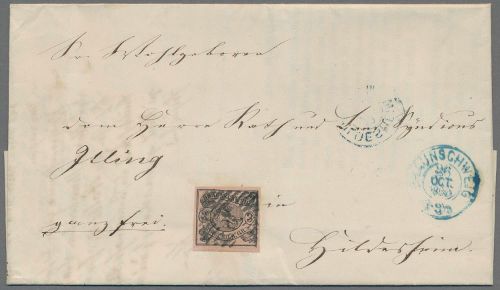 Sr. Wohlgeboren
dem Herrn Rath und Syndicus
Illing
ganz frei.
in
Hildesheim.
BRAUNSCHWEIG
OCT.